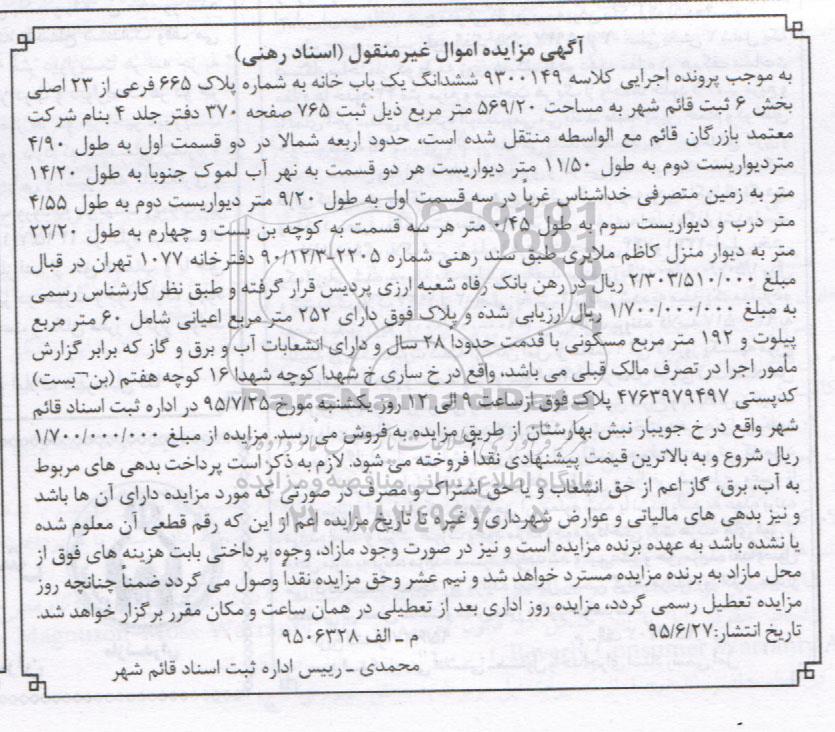 آگهی مزایده اموال غیرمنقول (اسناد رهنی)
به موجب پرونده اجرایی کلاسه ۹۳۰۰۱۴۹ ششدانگ یک باب خانه به شماره پلاک ۶۶۵ فرعی از ۲۳ اصلی
بخش ۶ ثبت قائم شهر به مساحت ۵۶۹/۲۰ متر مربع ذیل ثبت ۷۶۵ صفحه ۳۷۰ دفتر جلد ۴ بنام شرکت
معتمد بازرگان قائم مع الواسطه منتقل شده است، حدود اربعه شمالا در دو قسمت اول به طول ۴/۹۰
متردیواریست دوم به طول ۱۱/۵۰ متر دیواریست هر دو قسمت به نهر آب لموک جنوبا به طول ۱۴/۲۰
متر به زمین متصرفی خداشناس غرباً در سه قسمت اول به طول ۹/۲۰ متر دیواریست دوم به طول ۴/۵۵
متر درب و دیواریست سوم به طول ۰/۴۵ متر هر سه قسمت به کوچه بن بست و چهارم به طول ۲۲/۲۰
متر به دیوار منزل کاظم ملایری طبق سند رهنی شماره ۲۲۰۵-۹۰/۱۲/۳ دفترخانه ۱۰۷۷ تهران در قبال
مبلغ ۲/۳۰۳/۵۱۰/۰۰۰ ریال در رهن بانک رفاه شعبه ارزی پردیس قرار گرفته و طبق نظر کارشناس رسمی
به مبلغ ۱/۷۰۰/۰۰۰/۰۰۰ ریال ارزیابی شده و پلاک فوق دارای ۲۵۲ متر مربع اعیانی شامل ۶۰ متر مربع
پیلوت و ۱۹۲ متر مربع مسکونی با قدمت حدودا ۲۸ سال و دارای انشعابات آب و برق و گاز که برابر گزارش
مأمور اجرا در تصرف مالک قبلی می باشد، واقع در خ ساری خ شهدا کوچه شهدا ۱۶ کوچه هفتم (بن بست)
کدپستی ۴۷۶۳۹۷۹۴۹۷ پلاک فوق از ساعت ۹ الی ۱۲ روز یکشنبه مورخ ۹۵/۷/۲۵ در اداره ثبت اسناد قائم
شهر واقع در خ جویبار نبش بهارستان از طریق مزایده به فروش می رسد. مزایده از مبلغ ۱/۷۰۰/۰۰۰/۰۰۰
ریال شروع و به بالاترین قیمت پیشنهادی نقداً فروخته می شود. لازم به ذکر است پرداخت بدهی های مربوط
به آب، برق، گاز اعم از حق انشعاب و یا حق اشتراک و مصرف در صورتی که مورد مزایده دارای آن ها باشد
و نیز بدهی های مالیاتی و عوارض شهرداری و غیره تا تاریخ مزایده اعم از این که رقم قطعی آن معلوم شده
یا نشده باشد به عهده برنده مزایده است و نیز در صورت وجود مازاد، وجوه پرداختی بابت هزینه های فوق از
محل مازاد به برنده مزایده مسترد خواهد شد و نیم عشر وحق مزایده نقداً وصول می گردد ضمناً چنانچه روز
مزایده تعطیل رسمی گردد، مزایده روز اداری بعد از تعطیلی در همان ساعت و مکان مقرر برگزار خواهد شد.
تاریخ انتشار:۹۵/۶/۲۷ م - الف ۹۵۰۶۳۲۸
محمدی - رییس اداره ثبت اسناد قائم شهر
ParsNamadData
پایگاه اطلاع رسانی مناقصه و مزایده